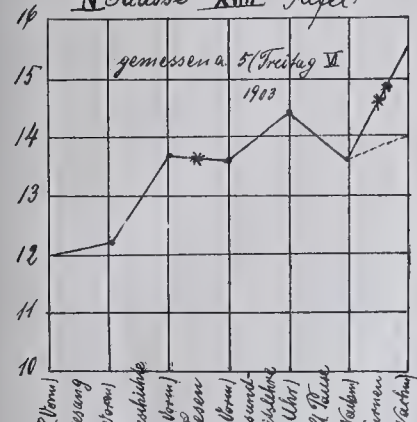 IV Classe XIII Tafel.
gemessen a. 5/Freitag VI
1903
16
15
14
13
12
11
10
Vorm)
Gesang
Vorm)
Geschichte
Vorm)
Lesen
Vorm)
Gesund-
heitslehre
Uhr)
Pause
Nachm)
Turnen
Nachm)